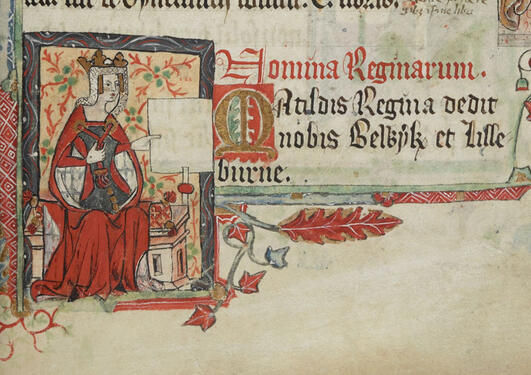 Nomina Reginarum.
Matildis Regina dedit
nobis Belwyk et Lille
burne.